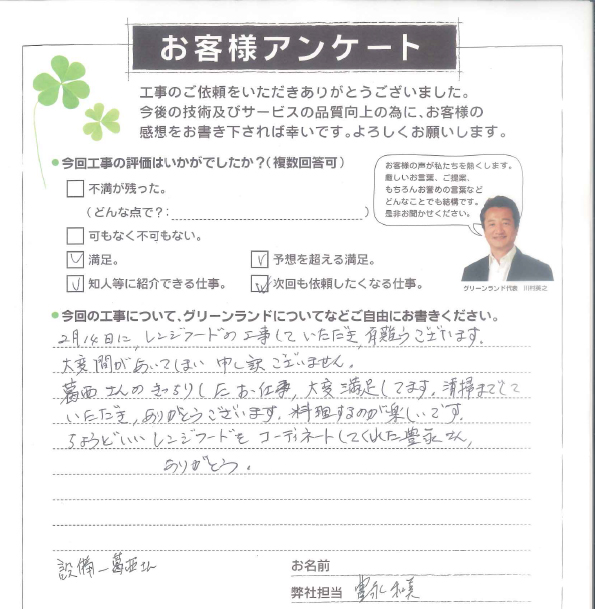 お客様アンケート
工事のご依頼をいただきありがとうございました。
今後の技術及びサービスの品質向上の為に、お客様の
感想をお書き下されば幸いです。よろしくお願いします。
●今回工事の評価はいかがでしたか?(複数回答可)
不満が残った。
(どんな点で?: )
可もなく不可もない。
満足。
予想を超える満足。
知人等に紹介できる仕事。
次回も依頼したくなる仕事。
お客様の声が私たちを熱くします。
厳しいお言葉、ご提案、
もちろんお誉めの言葉など
どんなことでも結構です。
是非お聞かせください。
グリーンランド代表
●今回の工事について、グリーンランドについてなどご自由にお書きください。
2月14日に、レンジフードの工事していただき、有難うございます。
大変間があいてしまい申し訳ございません。
葛西さんのきっちりしたお仕事、大変満足してます。清掃までして
いただき、ありがとうございます。料理するのが楽しいです。
ちょうどいいレンジフードをコーディネートしてくれた豊永さん、
ありがとう。
設備―葛西さん
お名前
弊社担当 豊永